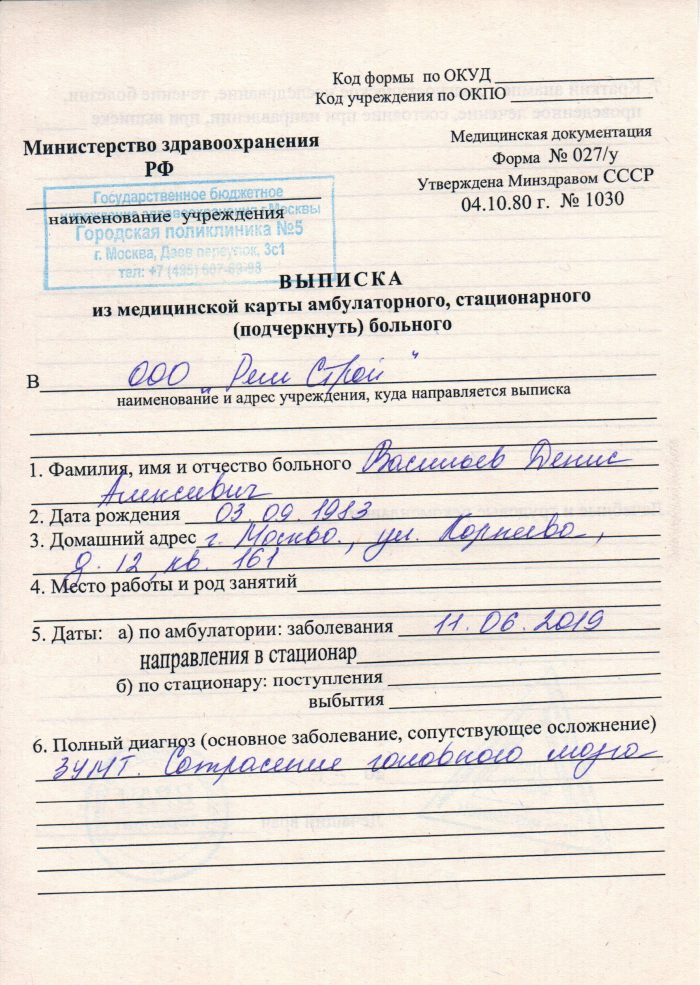 Код формы по ОКУД
Код учреждения по ОКПО
Министерство здравоохранения
РФ
Медицинская документация
Форма № 027/у
Утверждена Минздравом СССР
04.10.80 г. № 1030
Государственное бюджетное
учреждение здравоохранения г. Москвы
наименование учреждения
Городская поликлиника №5
г. Москва, Даев переулок, 3с1
тел: +7 (495)
ВЫПИСКА
из медицинской карты амбулаторного, стационарного
(подчеркнуть) больного
В ООО „Рем Строй"
наименование и адрес учреждения, куда направляется выписка
1. Фамилия, имя и отчество больного Васильев Денис
Алексевич
2. Дата рождения 03.09.1983
3. Домашний адрес г. Москва., ул. Корнеева,
д. 12, кв. 161
4. Место работы и род занятий
5. Даты: а) по амбулатории: заболевания 11.06.2019
направления в стационар
б) по стационару: поступления
выбытия
6. Полный диагноз (основное заболевание, сопутствующее осложнение)
ЗЧМТ. Сотрясение головного мозга